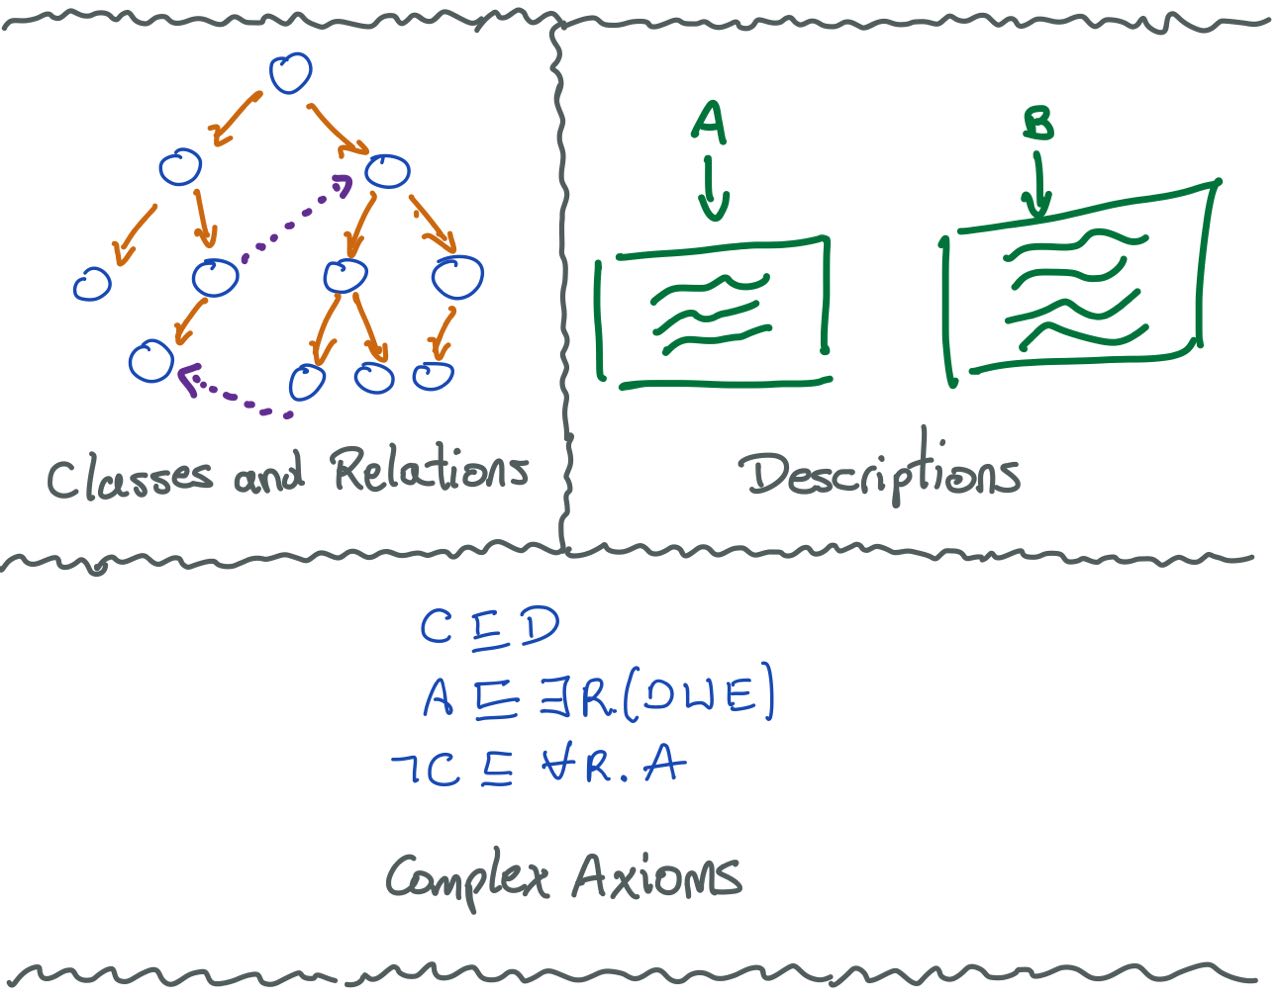 Classes and Relations
A
B
Descriptions
C ⊑ D
A ⊑ ∃R.(D⊔E)
¬C ⊑ ∀R.A
Complex Axioms